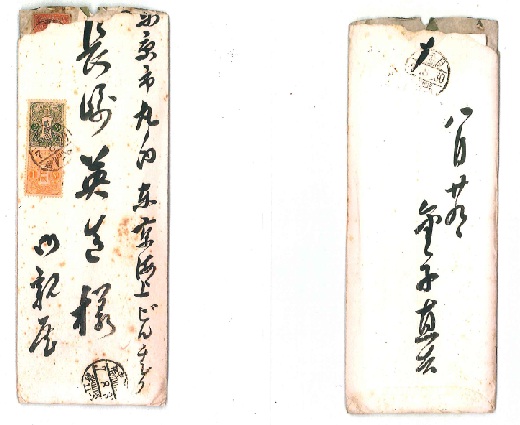 東京市丸ノ内東京海上ビル
長崎英造様
御親展
八月廿九
金子直吉